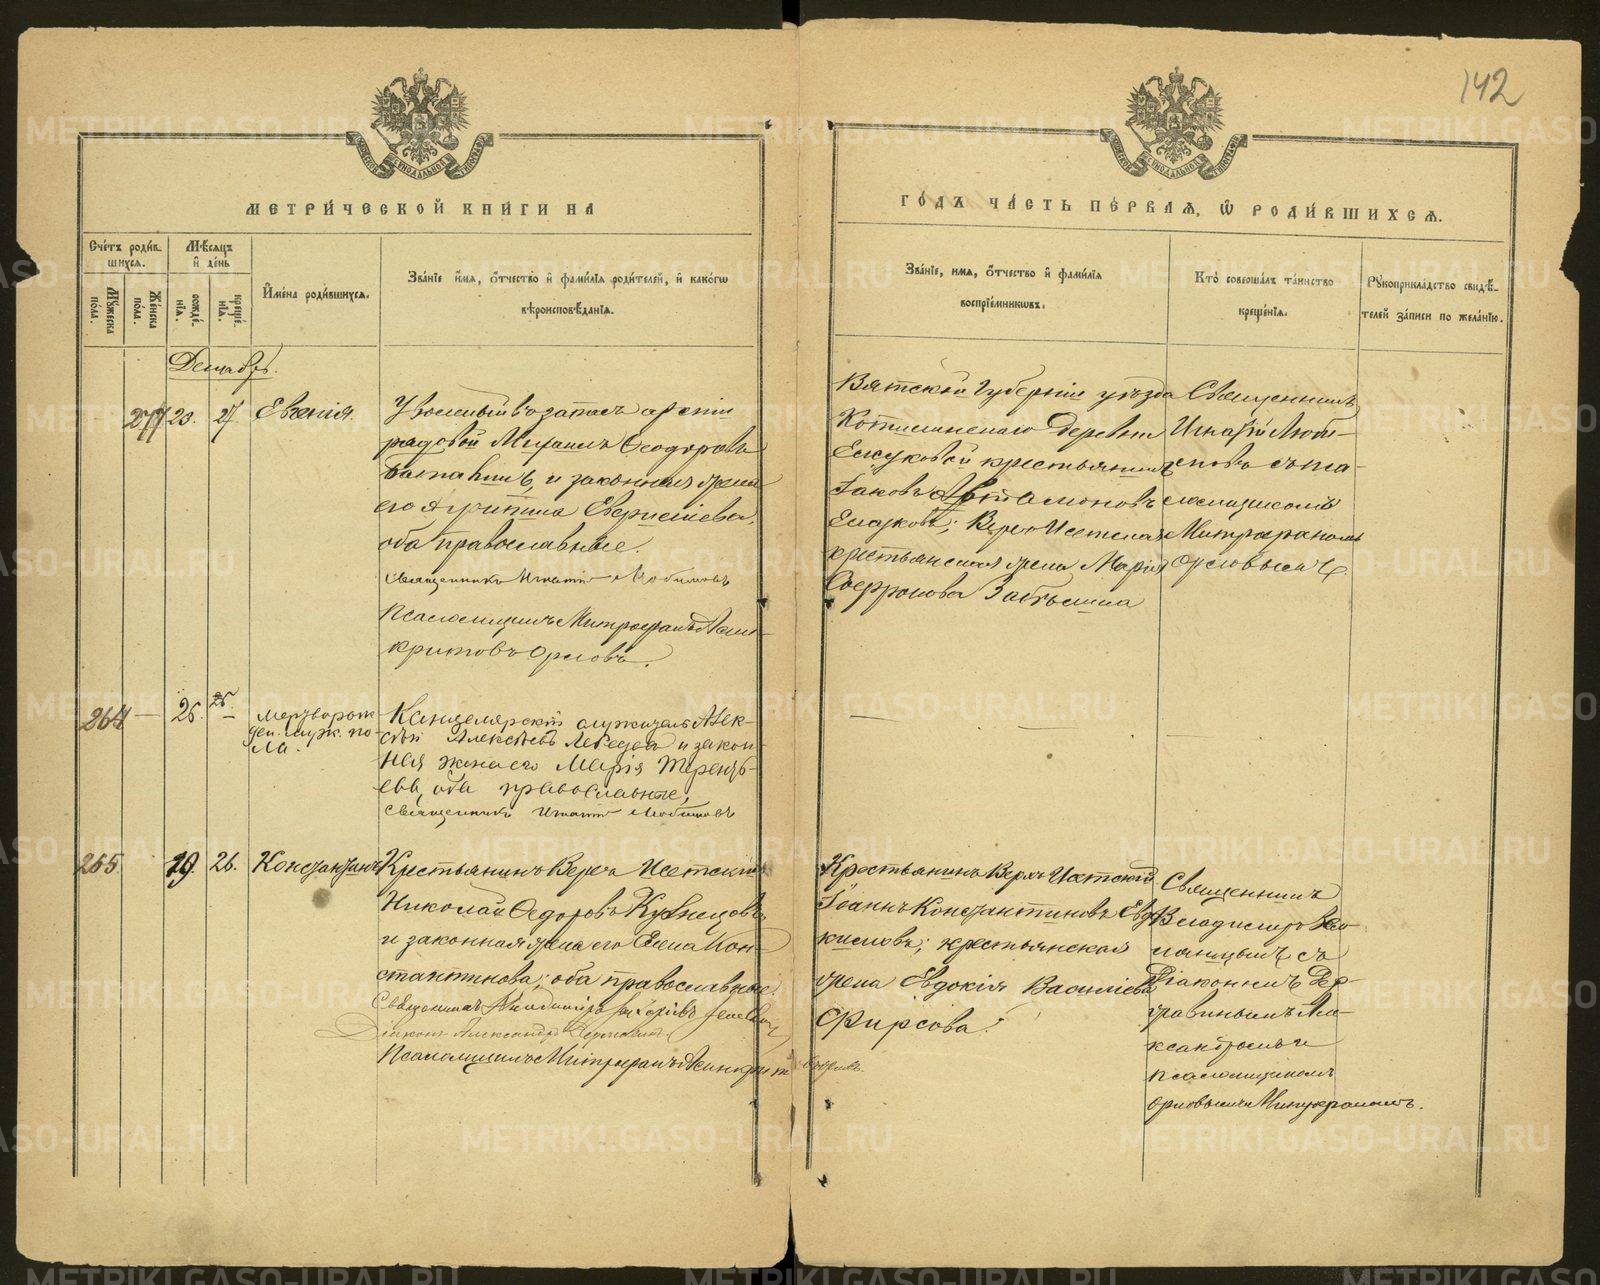 142
МЕТРИ́ЧЕСКОЙ КНИ́ГИ НА
ГО́ДЪ ЧА́СТЬ ПЕ́РВАЯ, Ѽ РОДИ́ВШИХСЯ.
Сче́тъ роди́в-
шихся.
Мѣ́сяцъ
и҆ де́нь
Му́жеска
по́ла.
Же́нска
по́ла.
рожде́-
нїѧ.
креще́-
нїѧ.
И҆мена̀ роди́вшихся.
Зва́нїе и҆́мя, ѻ҆́тчество и҆ фами́лїя роди́телей, и҆ како́гѡ
вѣроисповѣ́данїя.
Зва́нїе, и҆мя, ѻ҆́тчество и҆ фами́лїя
воспрїе́мниковъ.
Кто̀ соверша́лъ та́инство
креще́нїя.
Рꙋкоприкла́дство свидѣ́-
телей за́писи по жела́нїю.
Декабрь.
277 23. 27 Евгенія.
Уволенный в запасъ арміи
рядовой Михаилъ Ѳеодоровъ
и законная жена
его Агрипина
оба православные.
Священникъ Игнатій Любимовъ
Псаломщикъ Митрофанъ Асин-
критовъ Орловъ.
Вятской Губерніи уѣзда
Котельническаго деревни
крестьянинъ
Іаковъ Артамоновъ
Верхъ Исетская
крестьянская жена Марія
Софронова
Священникъ
Игнатій Люби-
мовъ съ пса-
ломщикомъ
Митрофаномъ
Орловымъ
264 — 25. 25.
мертворож
ден. муж. по-
ла.
Канцелярскій служитель Алек-
сѣй Алексѣевъ Лебедев и закон-
ная жена его Марія Терентъ-
ева, оба православные,
Священникъ Игнатій Любимовъ
265 19. 26. Константинъ
Крестьянинъ Верхъ Исетскій
Николай Ѳедоровъ Кузнецовъ
и законная жена его Елена Кон-
стантинова; оба православные.
Священникъ Владиміръ
Діаконъ Александръ
Псаломщикъ Митрофанъ Асинкрит
Орловъ.
Крестьянинъ Верхъ Исетскій
Іоаннъ Константиновъ Евдо-
кимовъ; крестьянская
жена Евдокія Василіева
Фирсова.
Священникъ
Владиміръ
съ
Діакономъ Дер-
жавинымъ Але-
ксандромъ и
псаломщикомъ
Орловымъ Митрофаномъ.
METRIKI.GASO-URAL.RU